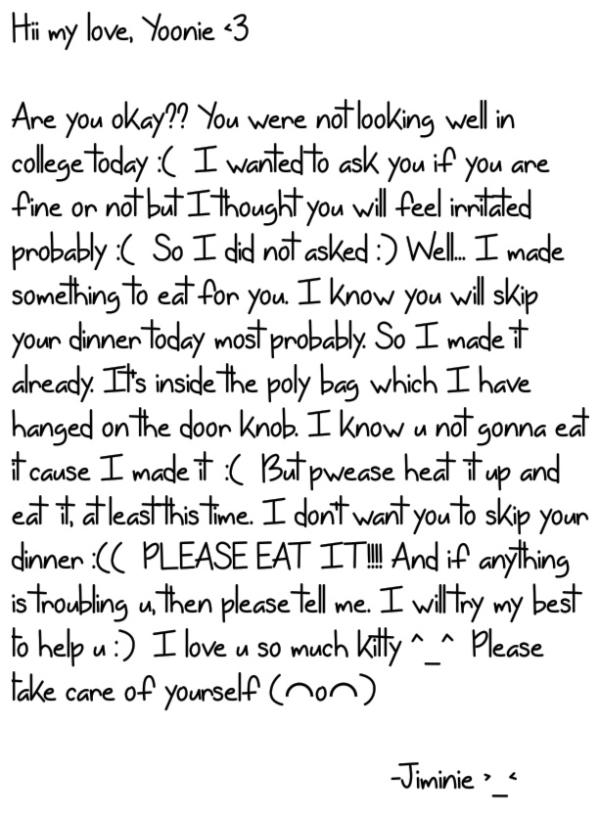 Hii my love, Yoonie <3
Are you okay?? You were not looking well in
college today :( I wanted to ask you if you are
fine or not but I thought you will feel irritated
probably :( So I did not asked :) Well... I made
something to eat for you. I know you will skip
your dinner today most probably. So I made it
already. It's inside the poly bag which I have
hanged on the door knob. I know u not gonna eat
it cause I made it :( But pwease heat it up and
eat it, at least this time. I don't want you to skip your
dinner :(( PLEASE EAT IT!!!! And if anything
is troubling u, then please tell me. I will try my best
to help u :) I love u so much kitty ^_^ Please
take care of yourself (⌒o⌒)
-Jiminie >_<